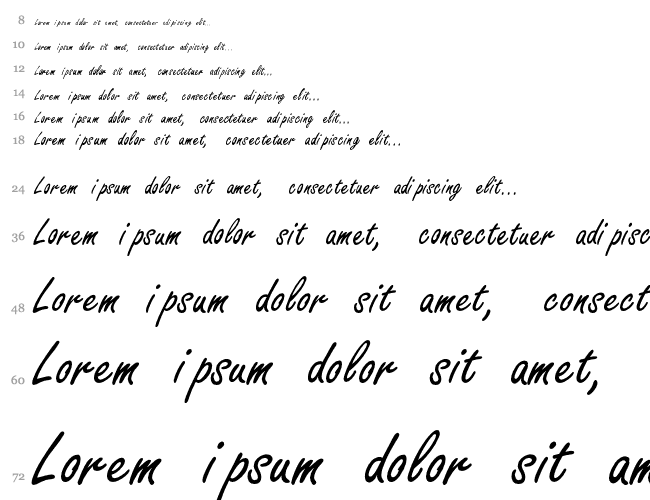 8 Lorem ipsum dolor sit amet, consectetuer adipiscing elit...
10 Lorem ipsum dolor sit amet, consectetuer adipiscing elit...
12 Lorem ipsum dolor sit amet, consectetuer adipiscing elit...
14 Lorem ipsum dolor sit amet, consectetuer adipiscing elit...
16 Lorem ipsum dolor sit amet, consectetuer adipiscing elit...
18 Lorem ipsum dolor sit amet, consectetuer adipiscing elit...
24 Lorem ipsum dolor sit amet, consectetuer adipiscing elit...
36 Lorem ipsum dolor sit amet, consectetuer adipisc
48 Lorem ipsum dolor sit amet, consect
60 Lorem ipsum dolor sit amet,
72 Lorem ipsum dolor sit am